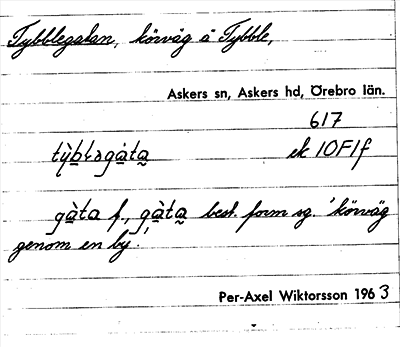 Tybblegatan, körväg å Tybble,
Askers sn, Askers hd, Örebro län.
617
ek 10F1f
gàta f., gàta best. form sg. 'körväg
genom en by'.
Per-Axel Wiktorsson 1963